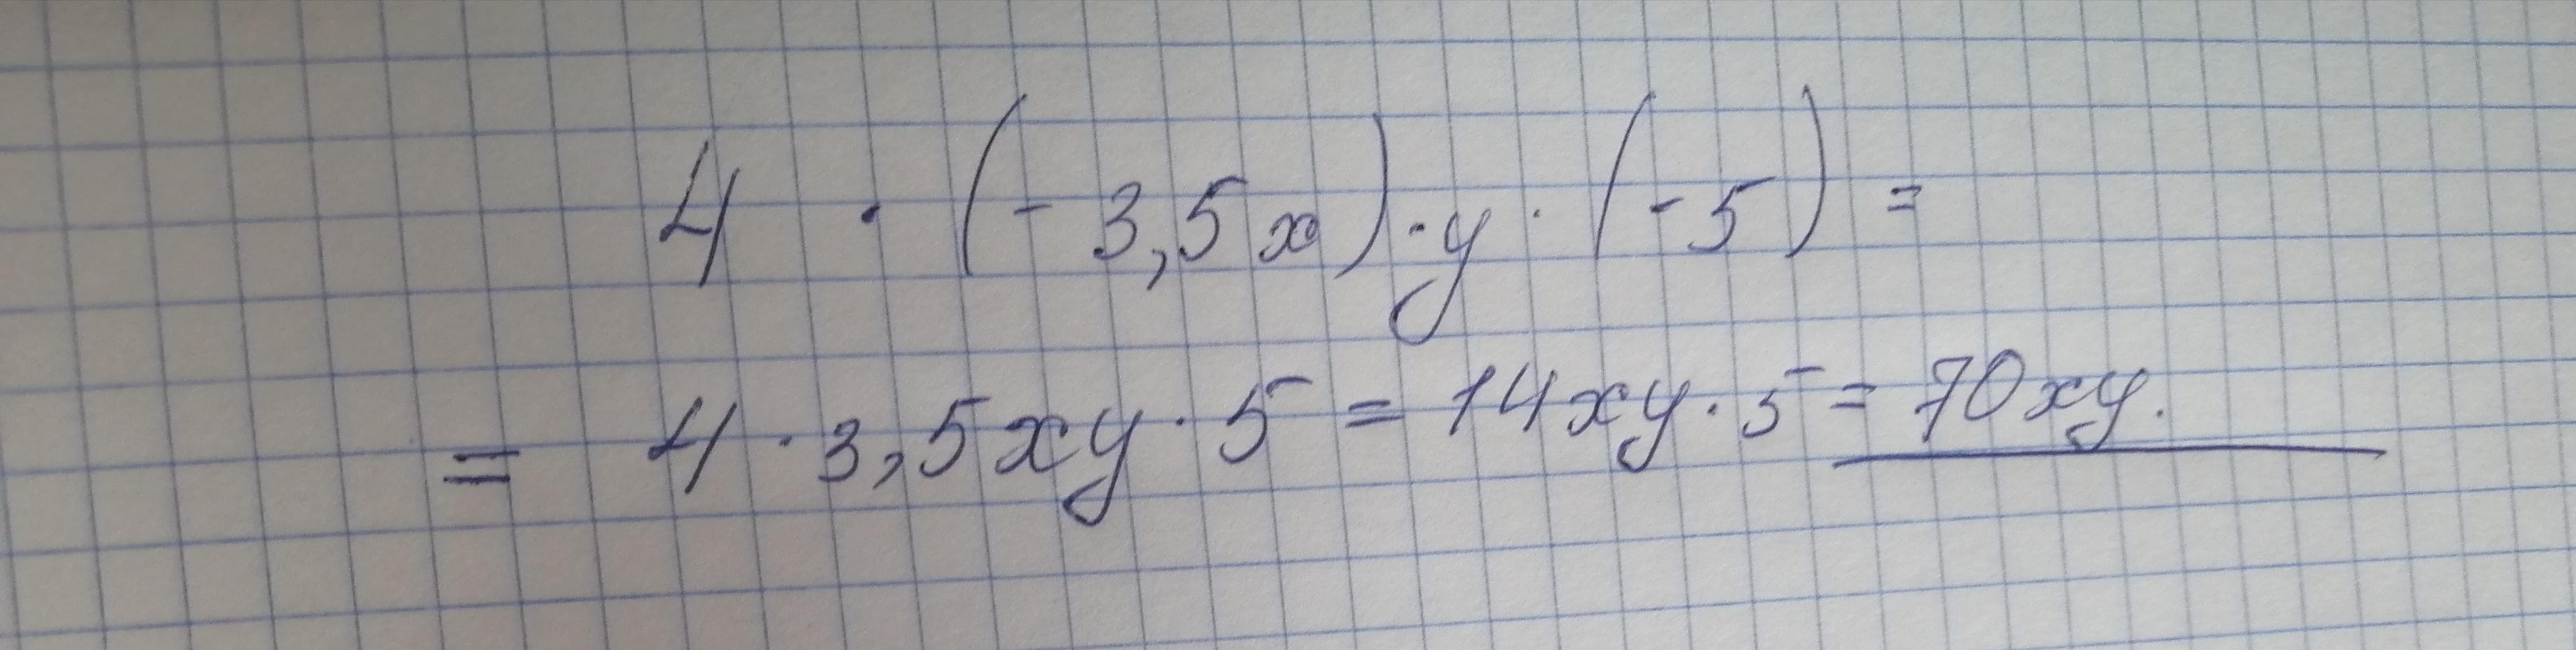 4 · (- 3,5x) · y · (-5) =
= 4 · 3,5xy · 5 = 14xy · 5 = 70xy.